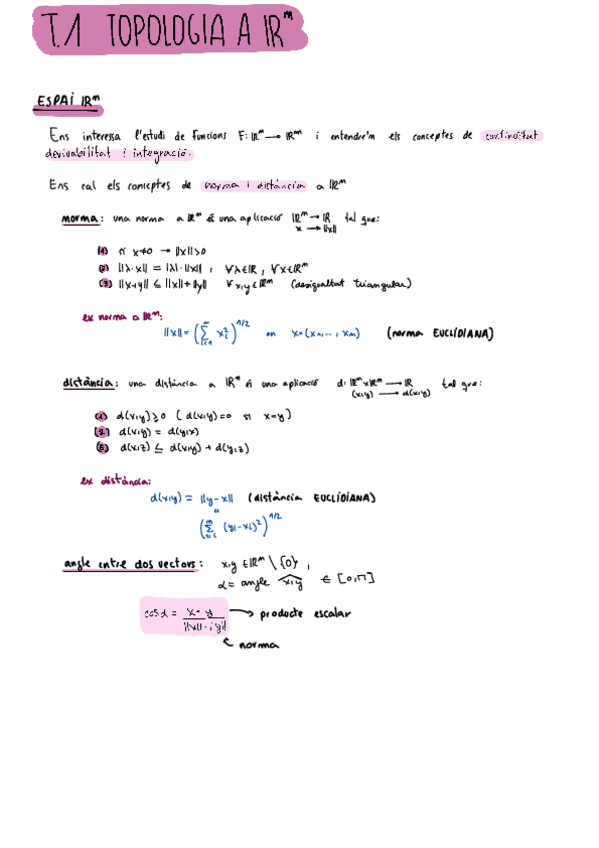 T.1 TOPOLOGIA A ℝᵐ
ESPAI ℝᵐ
Ens interessa l'estudi de funcions F: ℝᵐ → ℝᵐ i entendre'm els conceptes de continuïtat
derivabilitat i integració.
Ens cal els conceptes de norma i distància a ℝᵐ
norma: una norma a ℝᵐ és una aplicació ℝᵐ → ℝ tal que:
x → ||x||
(1) si x≠0 → ||x||>0
(2) ||λ·x|| = |λ|·||x||, ∀λ∈ℝ, ∀x∈ℝᵐ
(3) ||x+y|| ≤ ||x||+||y|| ∀x,y∈ℝᵐ (desigualtat triangular)
ex norma a ℝᵐ:
||x|| = (∑ᵢ₌₁ᵐ xᵢ²)^1/2 on x=(x₁,...,xₘ) (norma EUCLÍDIANA)
distància: una distància a ℝᵐ és una aplicació d: ℝᵐxℝᵐ → ℝ tal que:
(x,y) → d(x,y)
(1) d(x,y)≥0 ( d(x,y)=0 si x=y)
(2) d(x,y) = d(y,x)
(3) d(x,z) ≤ d(x,y) + d(y,z)
ex distància:
d(x,y) = ||y-x|| (distància EUCLÍDIANA)
"
(∑ᵢ₌₁ᵐ (yᵢ-xᵢ)²)^1/2
angle entre dos vectors: x,y ∈ℝᵐ \ {0},
α = angle x,y ∈ [0,π]
cos α = x·y / ||x||·||y|| → producte escalar
norma